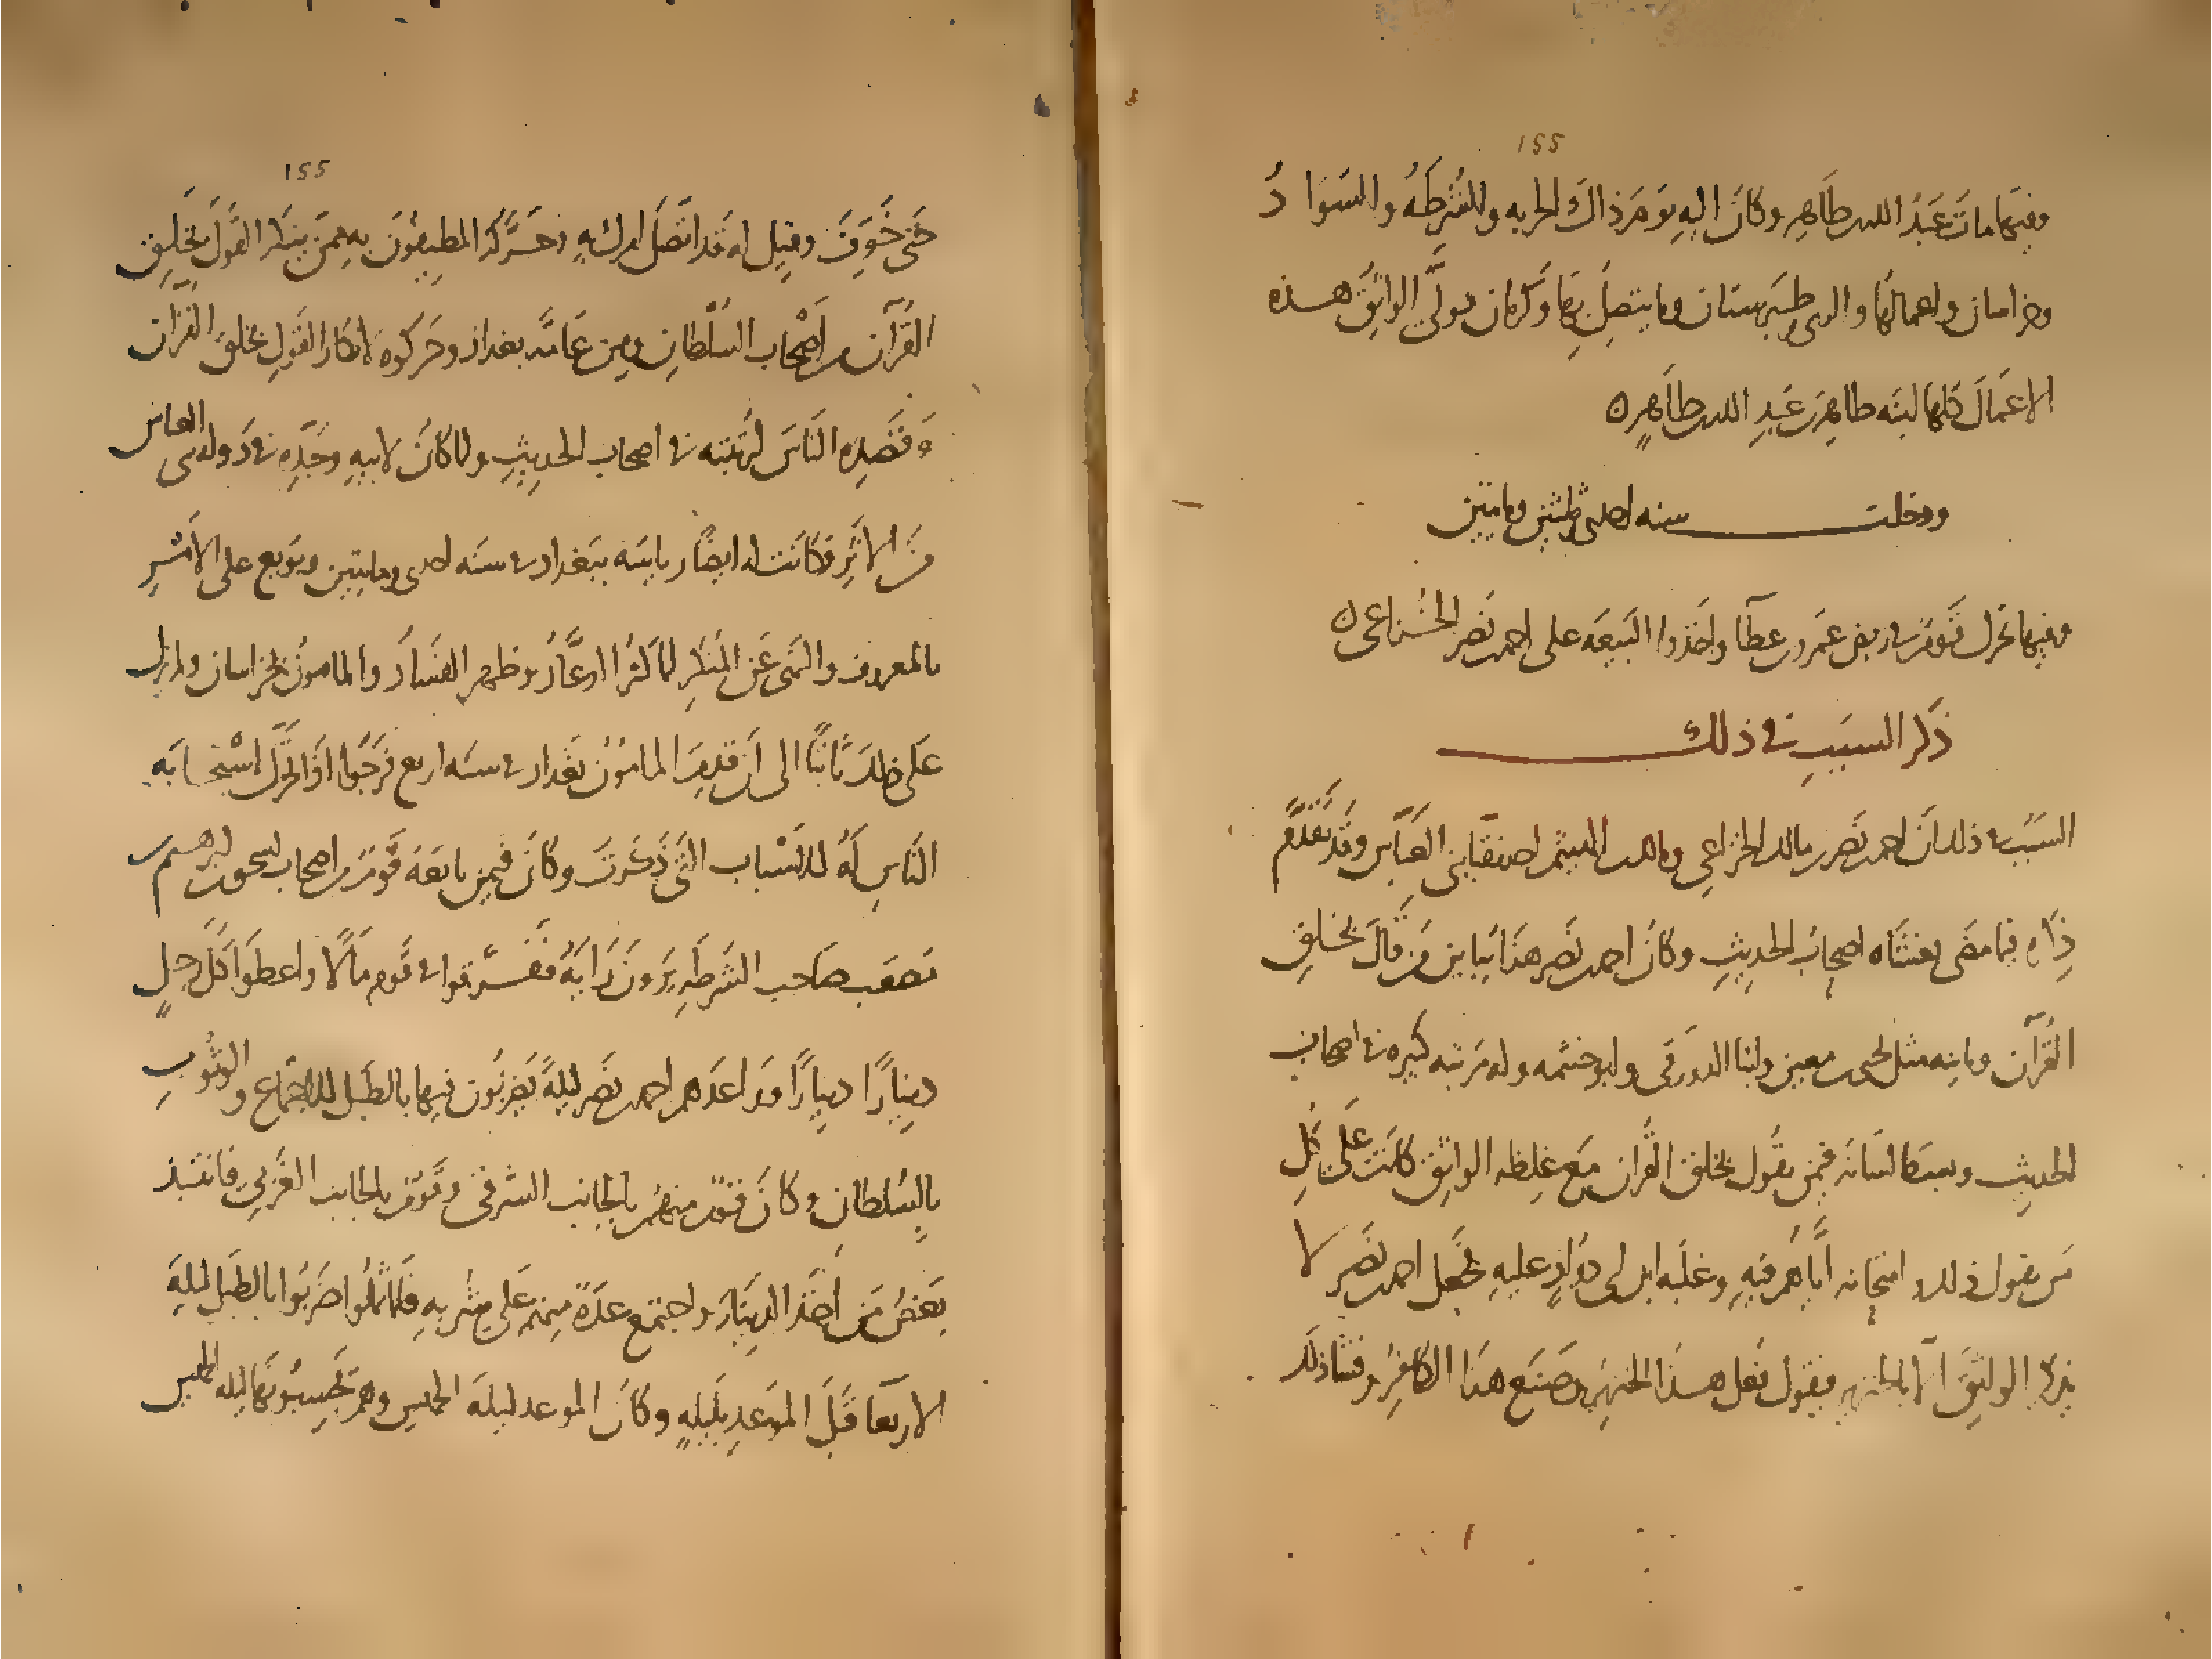 155
وفيها مات عبد الله بن طاهر وكان اليه يومذاك الحربه والشرطه والسواد
وخراسان واعمالها والرى وطبرستان وما يتصل بها وكرمان فولى الواثق هذه
الاعمال كلها ابنه طاهر بن عبد الله بن طاهر ه
ودخلت سنه احدى وثلثين ومايتين
وفيها تحرك قوم فى ربض عمرو بن عطا واخذوا البيعه على احمد بن نصر الخزاعى ه
ذكر السبب فى ذلك
السبب فى ذلك ان احمد بن نصر بن مالك الخزاعى ومالك بن الهيثم احد نقبا بنى العباس وقد تقدم
ذكره فيما مضى يغشاه اصحاب الحديث وكان احمد بن نصر هذا يباين من قال بخلق
القرآن وما بنه مثل يحيى بن معين وابنا الدورقى وابو خيثمه وله مرتبه كبيره فى اصحاب
الحديث وبسط لسانه فيمن يقول بخلق القران مع غلظه الواثق كانت على كل
من يقول ذلك وامتحانه اياهم فيه وغلبه ابن ابى دؤاد عليه فجعل احمد بن نصر لا
يذكر الواثق الا بالخنزير فيقول فعل هذا الخنزير وصنع هذا الكافر وفشا ذلك
155
حتى خوف وقيل له قد اتصل امرك به وحركه المطيفون به ممن ينكر القول بخلق
القرآن من اصحاب السلطان ومن عامه بغداد وحركوه لانكار القول بخلق القران
وقصده الناس لرتبته فى اصحاب الحديث ولما كان لابيه وجده فى دوله بنى العباس
من الاثر وكانت له ايضا رياسه ببغداد فى سنه احدى ومايتين وبويع على الامر
بالمعروف والنهى عن المنكر لما كثر الدعار وظهر الفساد والمامون بخراسان ولم يزل
على ذلك ثابتا الى ان قدم المامون بغداد فى سنه اربع فرجوا اذا تحرك استجابه
الناس له للاسباب التى ذكرت وكان فيمن بايعه قوم من اصحاب اسحق بن ابرهيم بن
مصعب صاحب الشرطه يرون رايه ففرقوا فى قوم مالا واعطوا كل رجل
دينارا دينارا وواعدهم احمد بن نصر ليلة يضربون فيها بالطبل للاجتماع والوثوب
بالسلطان وكان قوم منهم بالجانب الشرقى وقوم بالجانب الغربى فانتبذ
بعض من اخذ الدينار واجتمع عدة منهم على شربه فلما ثملوا ضربوا بالطبل ليله
الاربعا قبل الموعد بليله وكان الموعد ليله الخميس وهم يحسبونها ليله الخميس